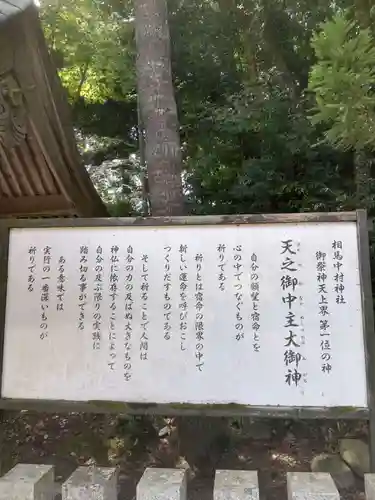 相馬中村神社
御祭神天上界第一位の神
天之御中主大御神
自分の願望と宿命とを
心の中でつなぐものが
祈りである
祈りとは宿命の限界の中で
新しい運命を呼びおこし
つくりだすものである
そして祈ることで人間は
自分の力の及ばぬ大きなものを
神仏に依存することによって
自分の及ぶ限りの実践に
踏み切る事ができる
ある意味では
実行の一番深いものが
祈りである